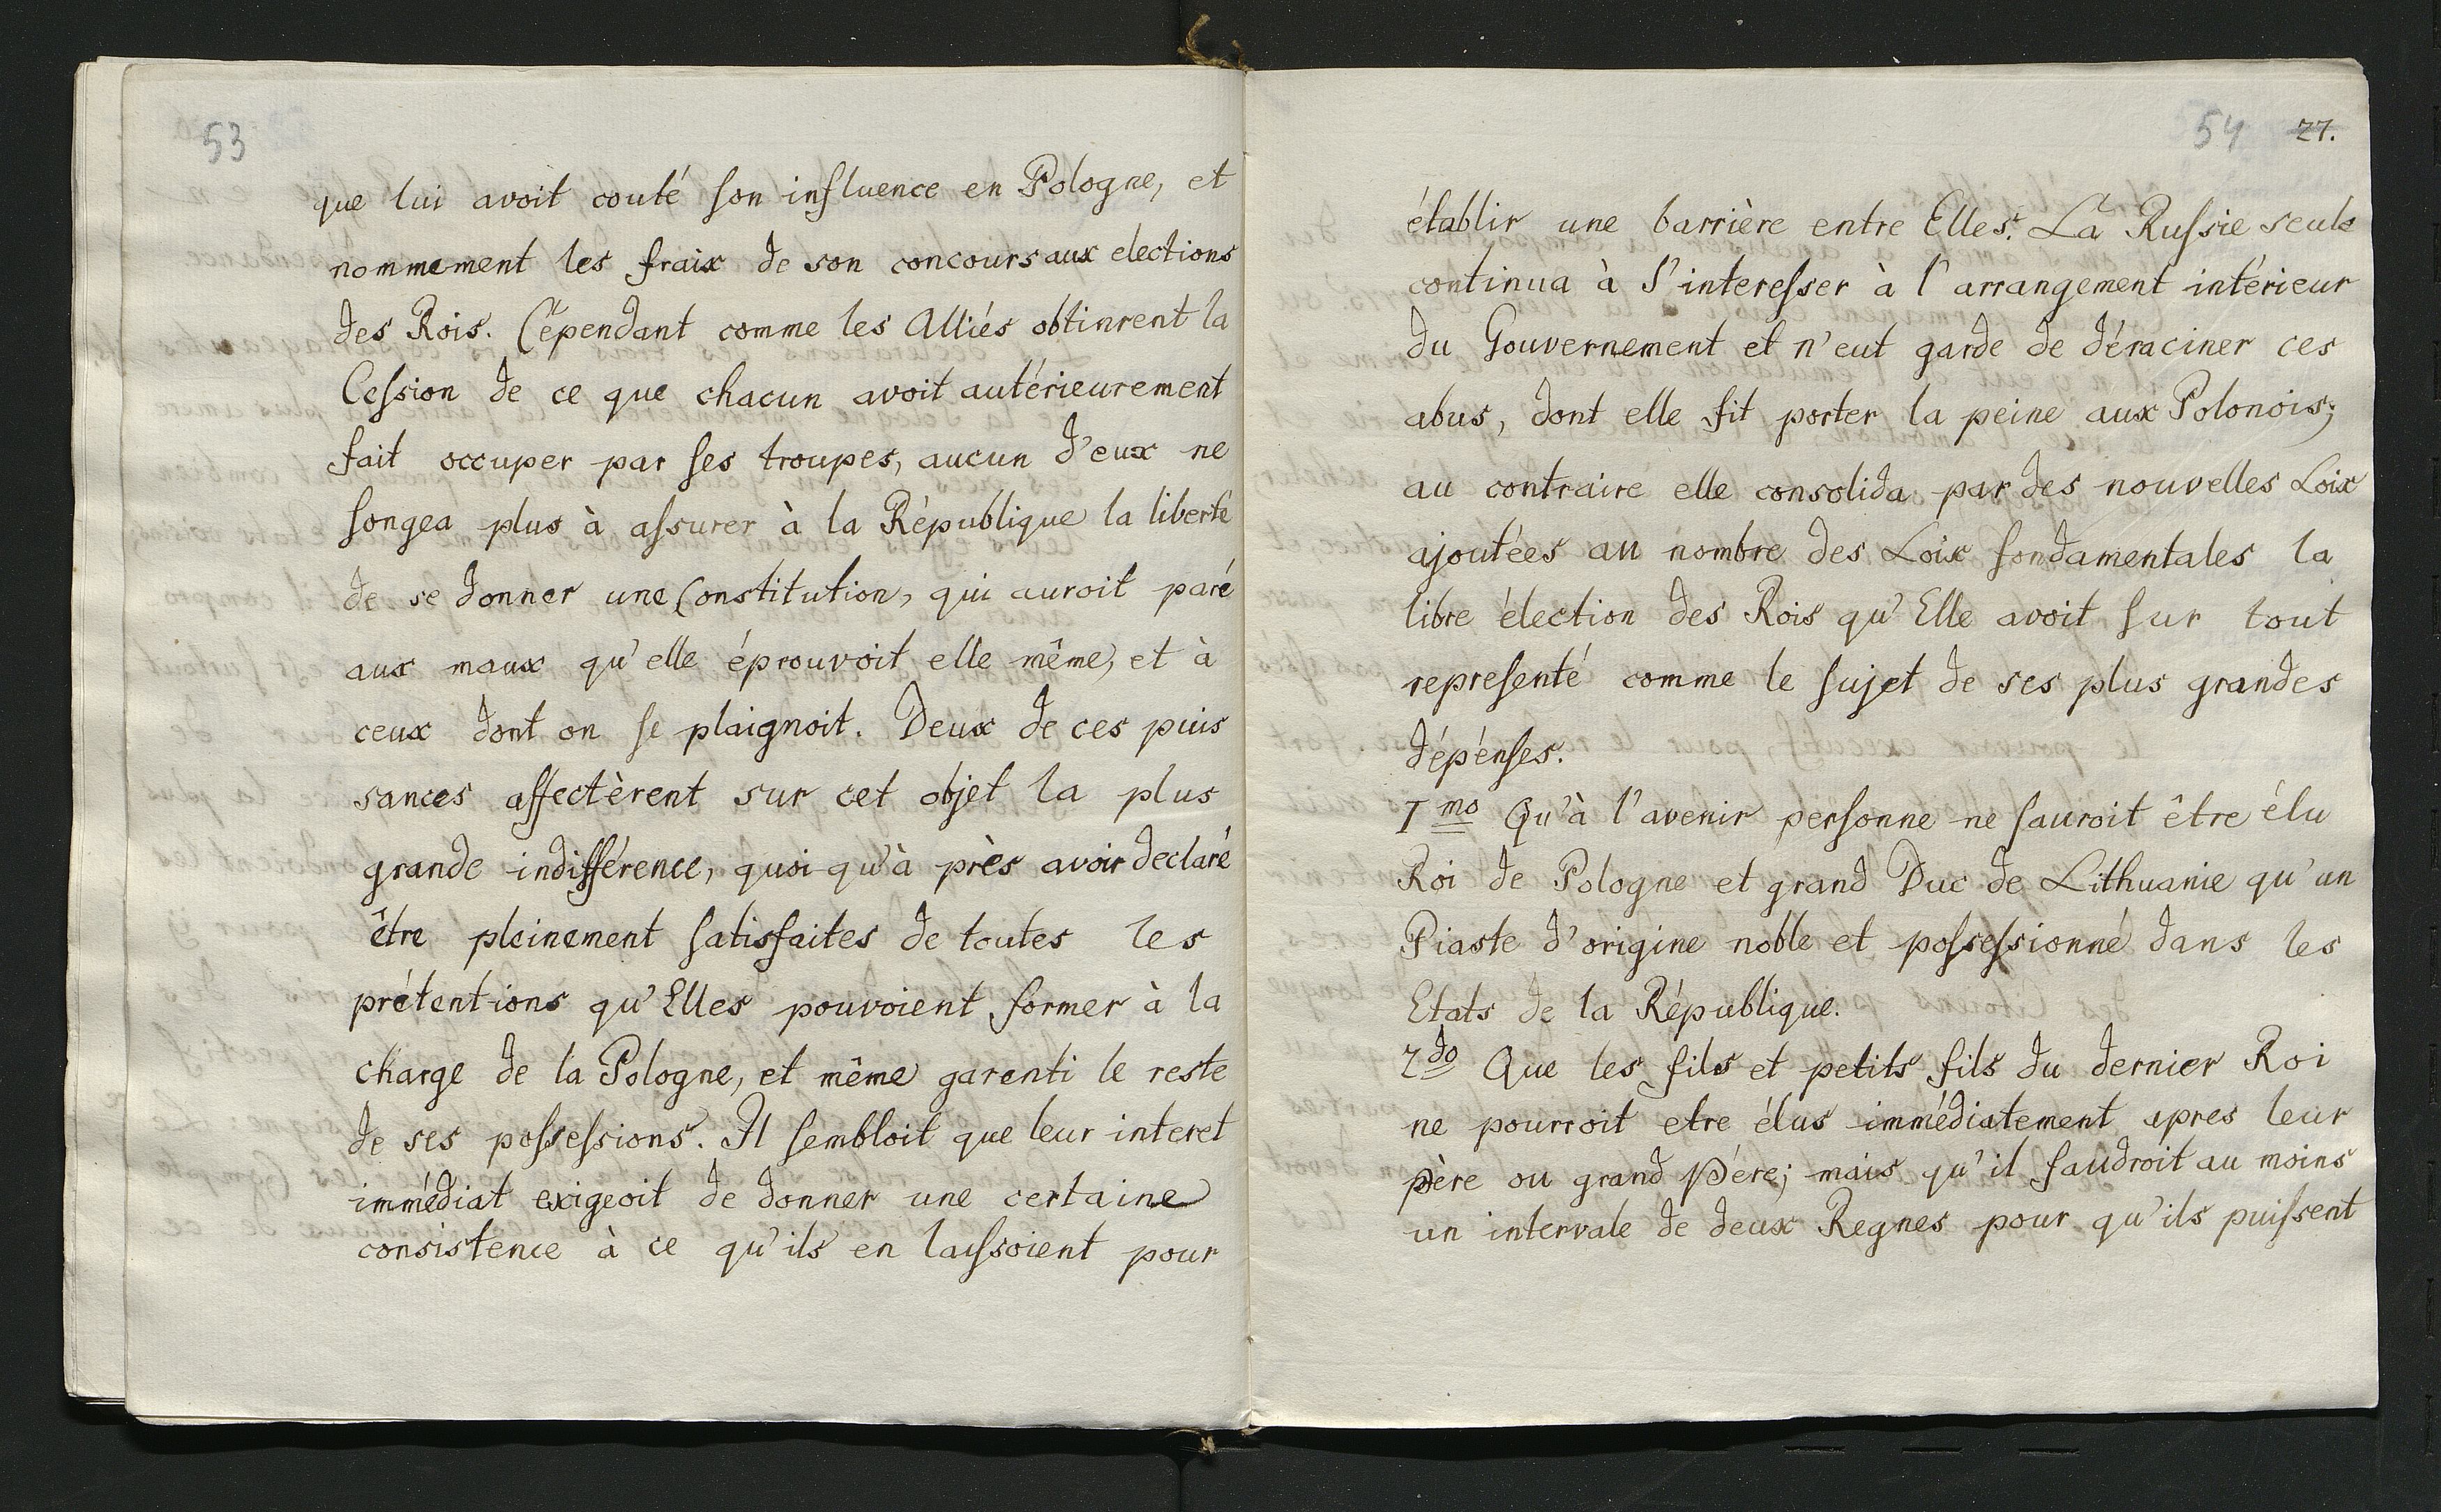 53
que lui avoit couté son influence en Pologne, et
nommement les fraix de son concours aux elections
des Rois. Cépendant comme les Alliés obtinrent la
Cession de ce que chacun avoit autérieurement
fait occuper par ses troupes, aucun d'eux ne
songea plus à assurer à la République la liberté
de se donner une Constitution, qui auroit paré
aux maux qu'elle éprouvoit elle même, et à
ceux dont on se plaignoit. Deux de ces puis
sances affectèrent sur cet objet la plus
grande indifférence, quoi qu'à près avoir declaré
être pleinement satisfaites de toutes les
prétentions qu'Elles pouvoient former à la
charge de la Pologne, et même garenti le reste
de ses possessions. Il sembloit que leur interet
immédiat exigeoit de donner une certaine
consistence à ce qu'ils en laissoient pour
54 27.
établir une barrière entre Elles. La Russie seule
continua à s'interesser à l'arrangement intérieur
du Gouvernement et n'eut garde de déraciner ces
abus, dont elle fit porter la peine aux Polonois;
au contraire elle consolida par des nouvelles Loix
ajoutées au nombre des Loix fondamentales la
libre élection des Rois qu'Elle avoit sur tout
representé comme le sujet de ses plus grandes
dépénses.
1mo Qu'à l'avenir personne ne sauroit être élu
Roi de Pologne et grand Duc de Lithuanie qu'un
Piaste d'origine noble et possessionné dans les
Etats de la République.
2do Que les fils et petits fils du dernier Roi
ne pourroit etre élus immédiatement apres leur
père ou grand Père; mais qu'il faudroit au moins
un intervale de deux Regnes pour qu'ils puissent